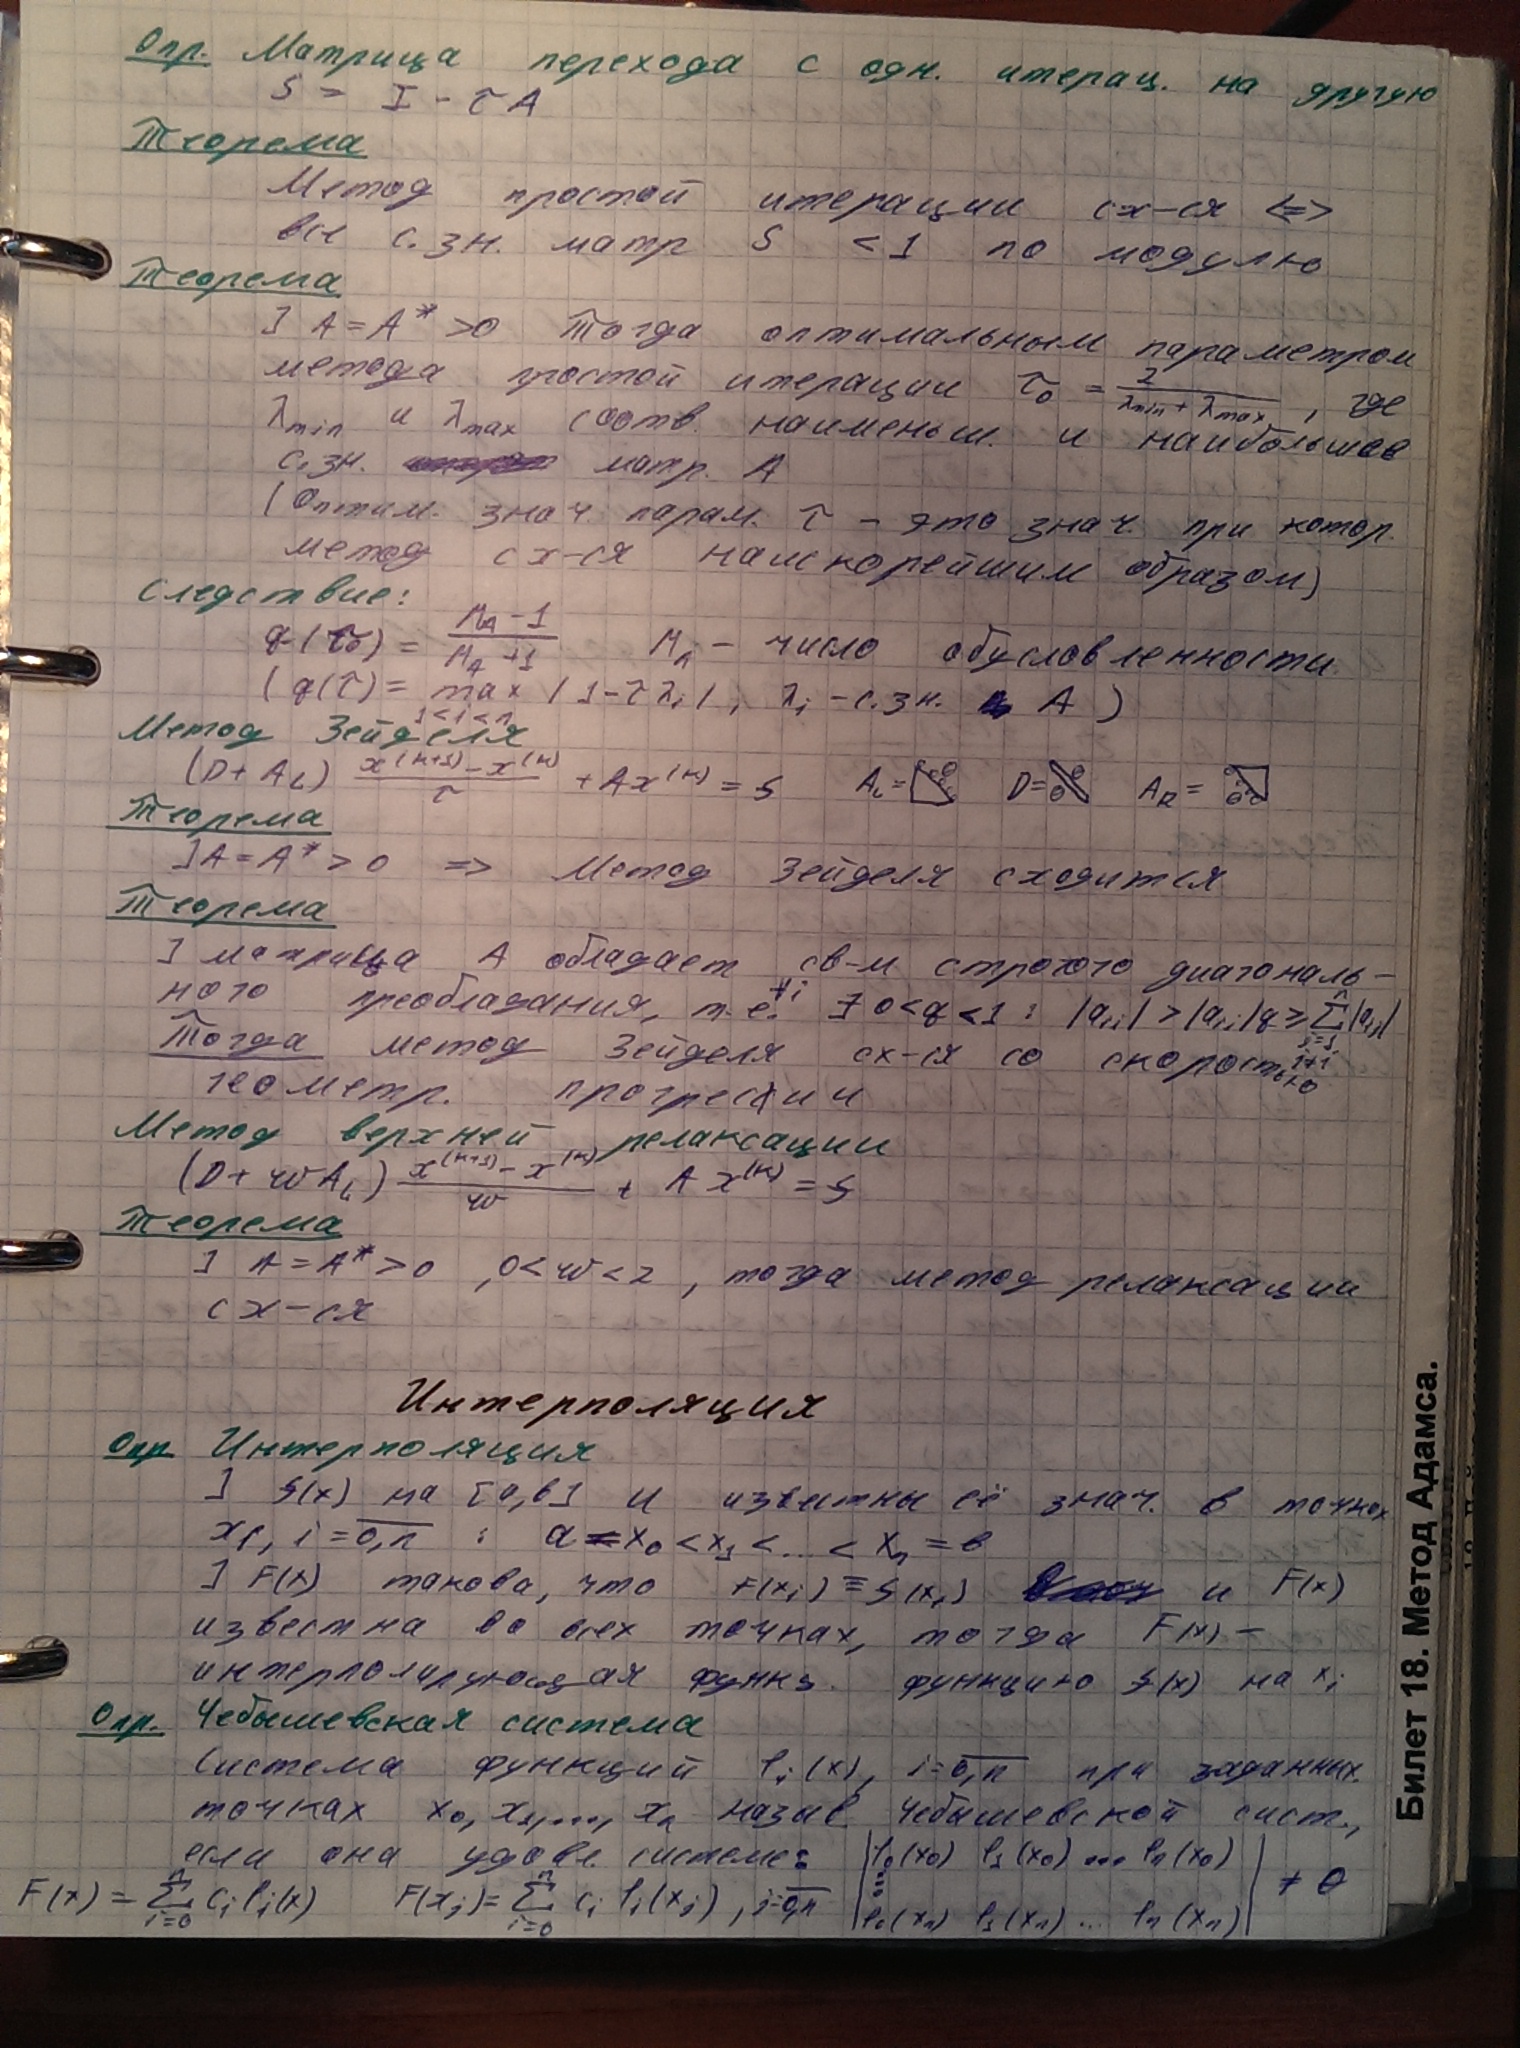 Опр. Матрица перехода с одн. итерац. на другую
S = I - τA
Теорема
Метод простой итерации сх-ся <=>
все с.зн. матр S < 1 по модулю
Теорема
] A = A* > 0 Тогда оптимальным параметром
метода простой итерации τ₀ = 2/(λmin + λmax), где
λmin и λmax соотв. наименьш. и наибольшее
с.зн. матр. A
(Оптим. знач. парам. τ - это знач. при котор.
метод сх-ся наискорейшим образом)
Следствие:
q(τ₀) = (M_A - 1)/(M_A + 1) M_A - число обусловленности
(q(τ) = max |1 - τλi|, λi - с.зн. A)
1<i<n
Метод Зейделя
(D + A_L) (x^(k+1) - x^(k))/τ + Ax^(k) = f A_L = D = A_R =
Теорема
] A = A* > 0 => Метод Зейделя сходится
Теорема
] матрица A обладает св-м строгого диагональ-
ного преобладания, т.е. ∀i ∃ 0<q<1 : |aii| > |aii|q ≥ Σ |aij|
n j=1 i≠j
Тогда метод Зейделя сх-ся со скоростью
геометр. прогрессии
Метод верхней релаксации
(D + wA_L) (x^(k+1) - x^(k))/w + Ax^(k) = f
Теорема
] A = A* > 0 , 0<w<2 , тогда метод релаксации
сх-ся
Интерполяция
Опр Интерполяция
] f(x) на [a,b] и известны её знач. в точках
xi, i = 0,n : a = x₀ < x₁ < ... < xn = b
] F(x) такова, что F(xi) ≡ f(xi) и F(x)
известна во всех точках, тогда F(x) -
интерполирующая функц. функцию f(x) на xi
Опр. Чебышевская система
Система функций φi(x), i = 0,n при заданных
точках x₀, x₁, ..., xn назыв Чебышевской сист.,
если она удовл. системе: |φ₀(x₀) φ₁(x₀) ... φn(x₀)|
F(x) = Σ ci φi(x) F(xj) = Σ ci φi(xj), j = 0,n ⋮ ≠ 0
|φ₀(xn) φ₁(xn) ... φn(xn)|
Билет 18. Метод Адамса.